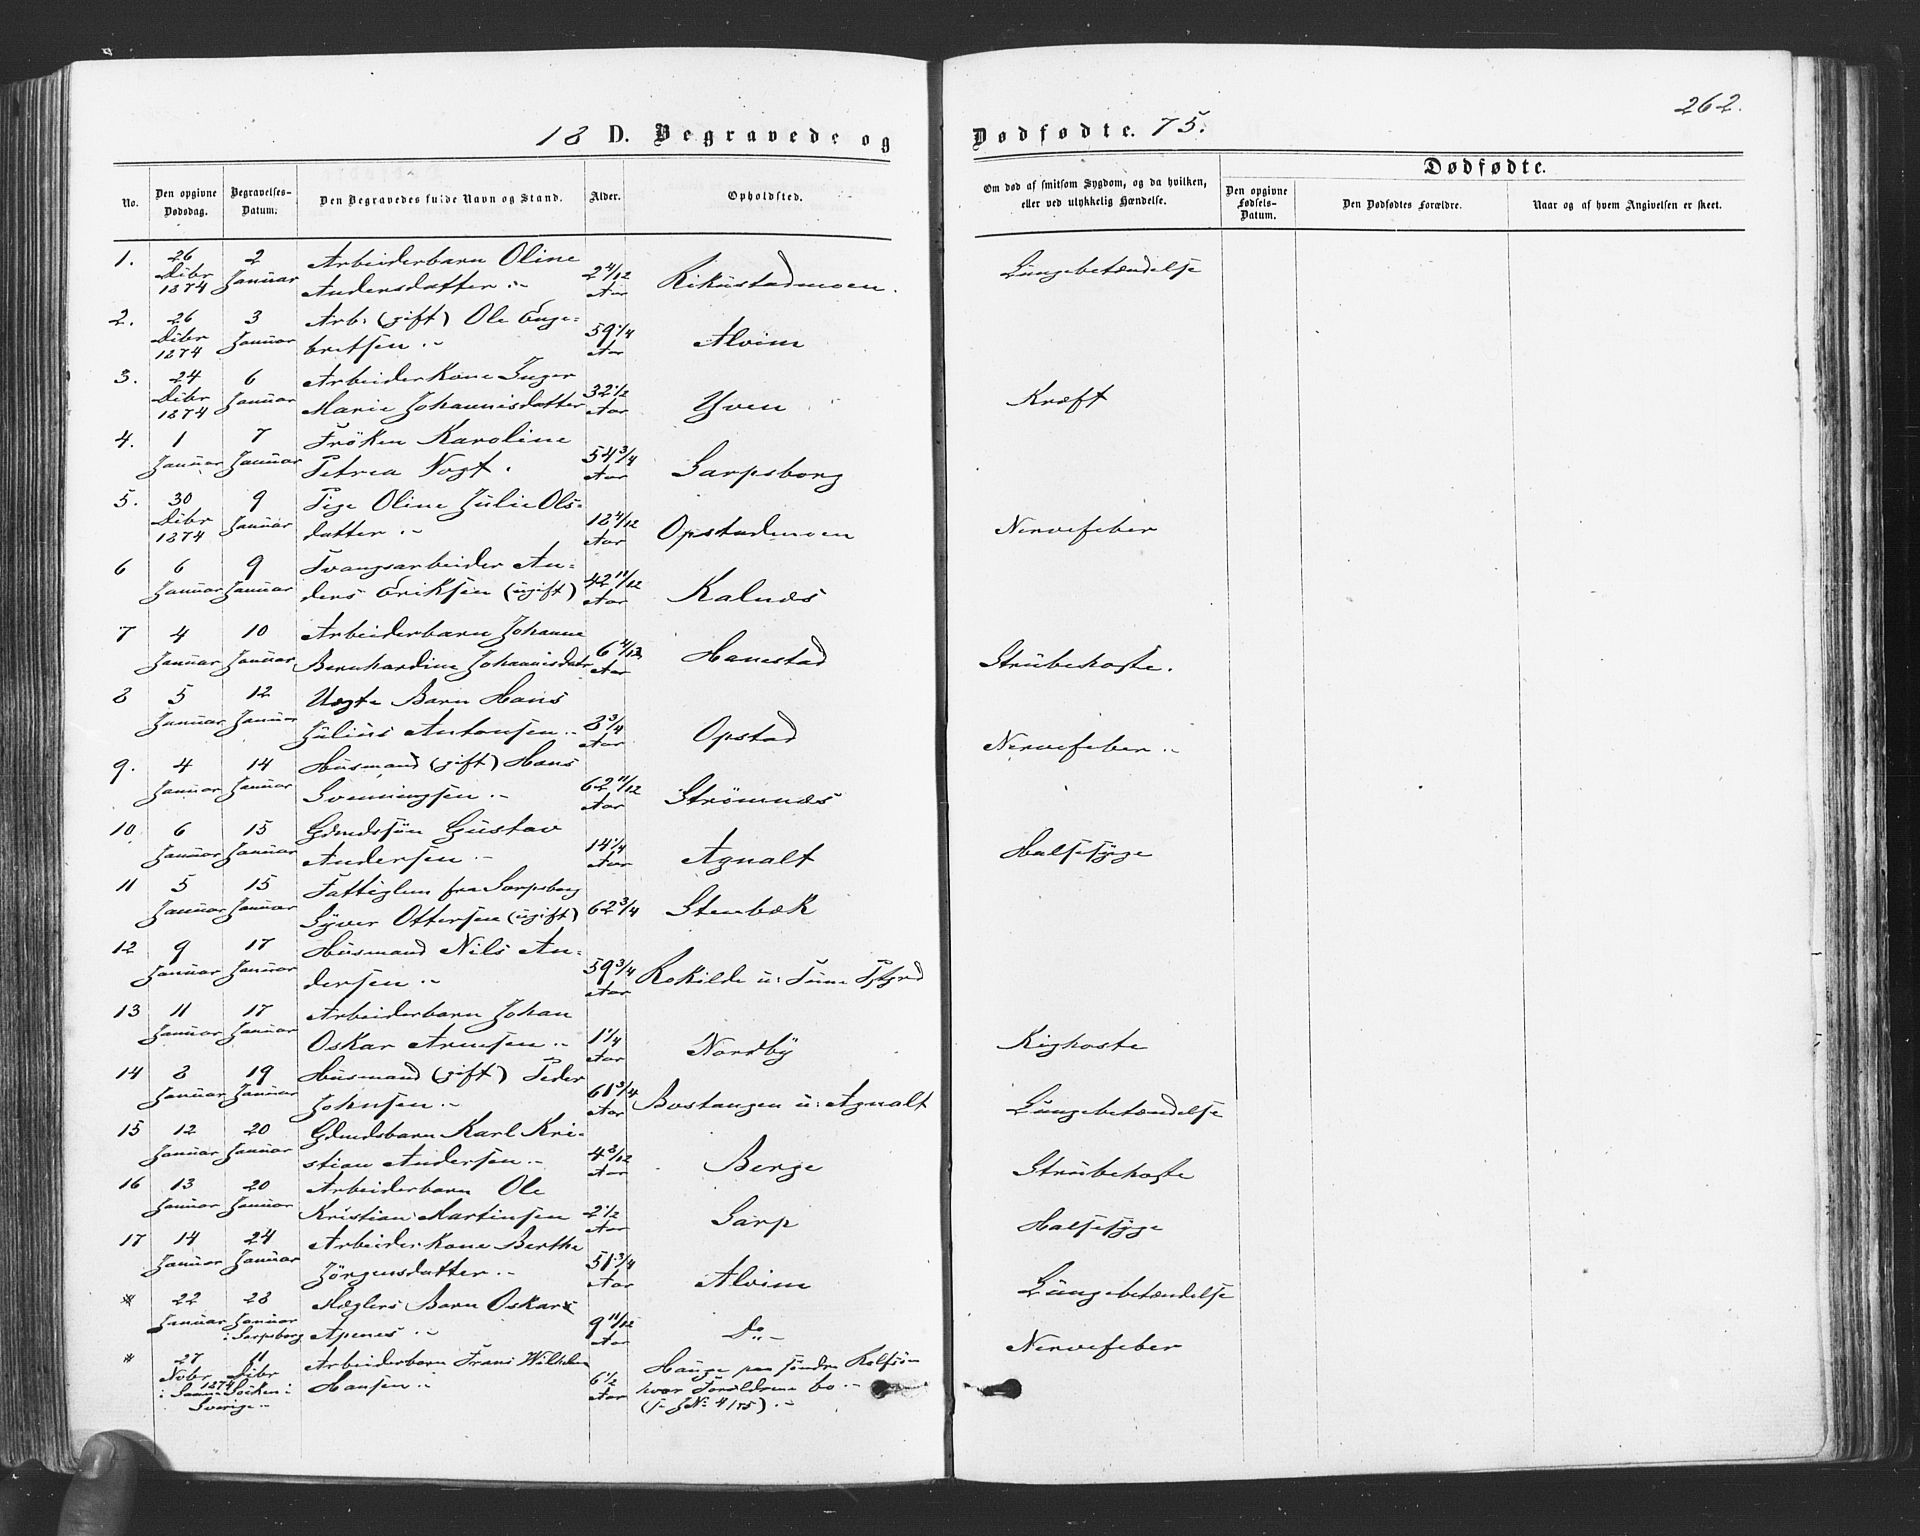 262.
18 D. Begravede og Dødfødte. 75.
No. Den opgivne Dødsdag. Begravelses-Datum. Den Begravedes fulde Navn og Stand. Alder. Opholdsted. Om død af smitsom Sygdom, og da hvilken, eller ved ulykkelig Hændelse. Dødfødte.
Den opgivne Fødsels-Datum. Den Dødfødtes Forældre. Naar og af hvem Angivelsen er skeet.
1. 26 2 Arbeiderbarn Oline
Dibr Januar Andersdatter .- 2 4/12 Rikustadmoen. Lungebetændelse
1874 Aar
2. 26 3 Arb: (gift) Ole Enge-
Dibr Januar bretsen .- 59 1/4 Alvim
1874 Aar
3. 24 6 Arbeiderkone Inger
Dibr Januar Marie Johannisdatter 32 1/2 Yven Kræft
1874 Aar
4. 1 7 Frøken Karoline
Januar Januar Petrea Vogt. 54 3/4 Sarpsborg
Aar
5. 30 9 Pige Oline Julie Ols-
Dibr Januar datter .- 18 4/12 Opstadmoen Nervefeber
1874 Aar
6 6 9 Tvangsarbeider An-
Januar Januar ders Eriksen (ugift) 42 11/12 Kalnæs
Aar
7 4 10 Arbeiderbarn Johanne
Januar Januar Bernhardine Johannisdatr 6 2/12 Hanestad Strubehoste.
Aar
8 5 12 Uægte Barn Hans
Januar Januar Julius Antonsen .- 8 3/4 Opstad Nervefeber .-
Aar
9. 4 14 Husmand (gift) Hans
Januar Januar Svenningsen .- 62 11/12 Strømnæs
Aar
10 6 15 Gdmdssøn Gustav
Januar Januar Andersen .- 14 1/4 Agnalt Halssyge
Aar
11 5 15 Fattiglem fra Sarpsborg
Januar Januar Syver Ottersen (ugift) 62 3/4 Stenbæk
12 9 17 Husmand Nils An-
Januar Januar dersen .- 59 3/4 Rokilde u: Tune
Aar
13 11 17 Arbeiderbarn Johan
Januar Januar Oskar Arnesen .- 1 1/4 Nordby Kighoste
Aar
14 8 19 Husmand (gift) Peder
Januar Januar Johnsen .- 61 3/4 Bostangen u: Agnalt Lungebetændelse
Aar
15 12 20 Gdmdsbarn Karl Kri-
Januar Januar stian Andersen .- 4 3/12 Berge Strubehoste
Aar
16 13 20 Arbeiderbarn Ole
Januar Januar Kristian Martinsen 2 1/2 Sarp Halssyge
Aar
17 14 24 Arbeiderkone Berthe
Januar Januar Jörgensdatter .- 51 3/4 Alvim Lungebetændelse
Aar
* 22 28 Mæglers Barn Oskar
Januar Januar Apenes .- 9 11/12 Do - Nervefeber
i Sarpsborg Aar
* 27 11 Arbeiderbarn Frans Wilhelm Hauge paa søndre Rolfsøn
Nobr Dibr Hansen .- 6 1/2 hvor Forældrene bo .-
1874 Aar (J No 4/75) .-
Sverige .-